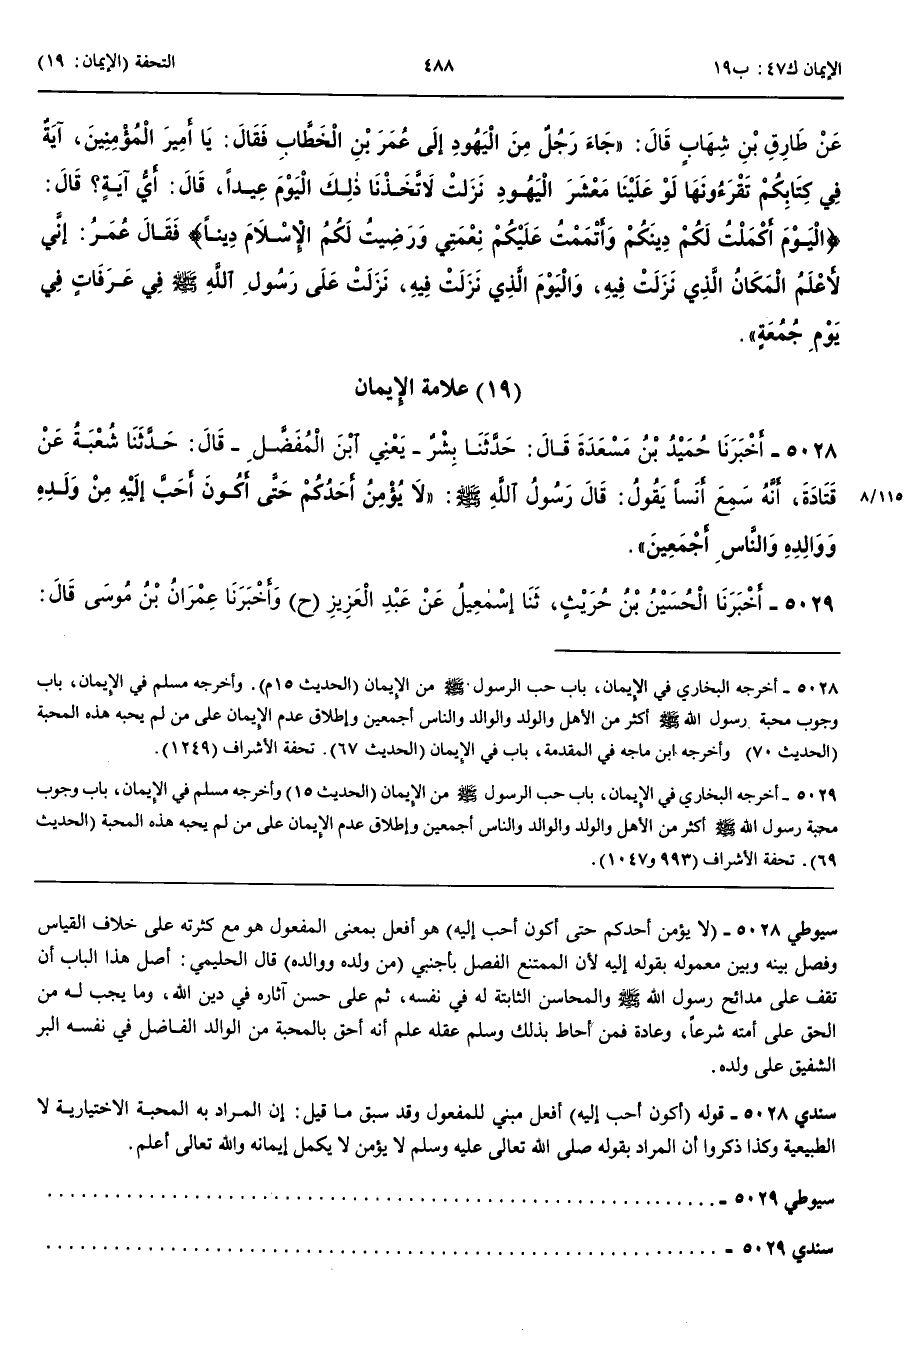 الإيمان ك٤٧: ب١٩ ٤٨٨ التحفة (الإيمان: ١٩)
عَنْ طَارِقِ بْنِ شِهَابٍ قَالَ: «جَاءَ رَجُلٌ مِنَ الْيَهُودِ إِلَى عُمَرَ بْنِ الْخَطَّابِ فَقَالَ: يَا أَمِيرَ الْمُؤْمِنِينَ، آيَةٌ
فِي كِتَابِكُمْ تَقْرَءُونَهَا لَوْ عَلَيْنَا مَعْشَرَ الْيَهُودِ نَزَلَتْ لَاتَّخَذْنَا ذٰلِكَ الْيَوْمَ عِيداً، قَالَ: أَيُّ آيَةٍ؟ قَالَ:
﴿الْيَوْمَ أَكْمَلْتُ لَكُمْ دِينَكُمْ وَأَتْمَمْتُ عَلَيْكُمْ نِعْمَتِي وَرَضِيتُ لَكُمُ الْإِسْلَامَ دِيناً﴾ فَقَالَ عُمَرُ: إِنِّي
لأَعْلَمُ الْمَكَانُ الَّذِي نَزَلَتْ فِيهِ، وَالْيَوْمَ الَّذِي نَزَلَتْ فِيهِ، نَزَلَتْ عَلَى رَسُولِ ٱللَّهِ ﷺ فِي عَرَفَاتٍ فِي
يَوْمِ جُمُعَةٍ».
(١٩) علامة الإيمان
٥٠٢٨ ـ أَخْبَرَنَا حُمَيْدُ بْنُ مَسْعَدَةَ قَالَ: حَدَّثَنَا بِشْرٌ ـ يَعْنِي ٱبْنَ الْمُفَضَّلِ ـ قَالَ: حَدَّثَنَا شُعْبَةُ عَنْ
قَتَادَةَ، أَنَّهُ سَمِعَ أَنَساً يَقُولُ: قَالَ رَسُولُ ٱللَّهِ ﷺ: «لَا يُؤْمِنُ أَحَدُكُمْ حَتَّى أَكُونَ أَحَبَّ إِلَيْهِ مِنْ وَلَدِهِ ٨/١١٥
وَوَالِدِهِ وَالنَّاسِ أَجْمَعِينَ».
٥٠٢٩ ـ أَخْبَرَنَا الْحُسَيْنُ بْنُ حُرَيْثٍ، ثَنَا إِسْمٰعِيلُ عَنْ عَبْدِ الْعَزِيزِ (ح) وَأَخْبَرَنَا عِمْرَانُ بْنُ مُوسَى قَالَ:
٥٠٢٨ ـ أخرجه البخاري في الإيمان، باب حب الرسول ﷺ من الإيمان (الحديث ١٥م). وأخرجه مسلم في الإيمان، باب
وجوب محبة رسول الله ﷺ أكثر من الأهل والولد والوالد والناس أجمعين وإطلاق عدم الإيمان على من لم يحبه هذه المحبة
(الحديث ٧٠) وأخرجه ابن ماجه في المقدمة، باب في الإيمان (الحديث ٦٧). تحفة الأشراف (١٢٤٩).
٥٠٢٩ ـ أخرجه البخاري في الإيمان، باب حب الرسول ﷺ من الإيمان (الحديث ١٥) وأخرجه مسلم في الإيمان، باب وجوب
محبة رسول الله ﷺ أكثر من الأهل والولد والوالد والناس أجمعين وإطلاق عدم الإيمان على من لم يحبه هذه المحبة (الحديث
٦٩). تحفة الأشراف (٩٩٣ و١٠٤٧).
سيوطي ٥٠٢٨ ـ (لا يؤمن أحدكم حتى أكون أحب إليه) هو أفعل بمعنى المفعول هو مع كثرته على خلاف القياس
وفصل بينه وبين معموله بقوله إليه لأن الممتنع الفصل بأجنبي (من ولده ووالده) قال الحليمي: أصل هذا الباب أن
تقف على مدائح رسول الله ﷺ والمحاسن الثابتة له في نفسه، ثم على حسن آثاره في دين الله، وما يجب له من
الحق على أمته شرعاً، وعادة فمن أحاط بذلك وسلم عقله علم أنه أحق بالمحبة من الوالد الفاضل في نفسه البر
الشفيق على ولده.
سندي ٥٠٢٨ ـ قوله (أكون أحب إليه) أفعل مبني للمفعول وقد سبق ما قيل: إن المراد به المحبة الاختيارية لا
الطبيعية وكذا ذكروا أن المراد بقوله صلى الله تعالى عليه وسلم لا يؤمن لا يكمل إيمانه والله تعالى أعلم.
سيوطي ٥٠٢٩ ـ ............................................................
سندي ٥٠٢٩ ـ ............................................................